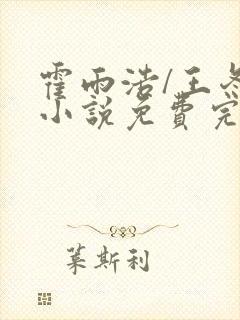 霍雨浩/王冬
小説免費完
萊斯利